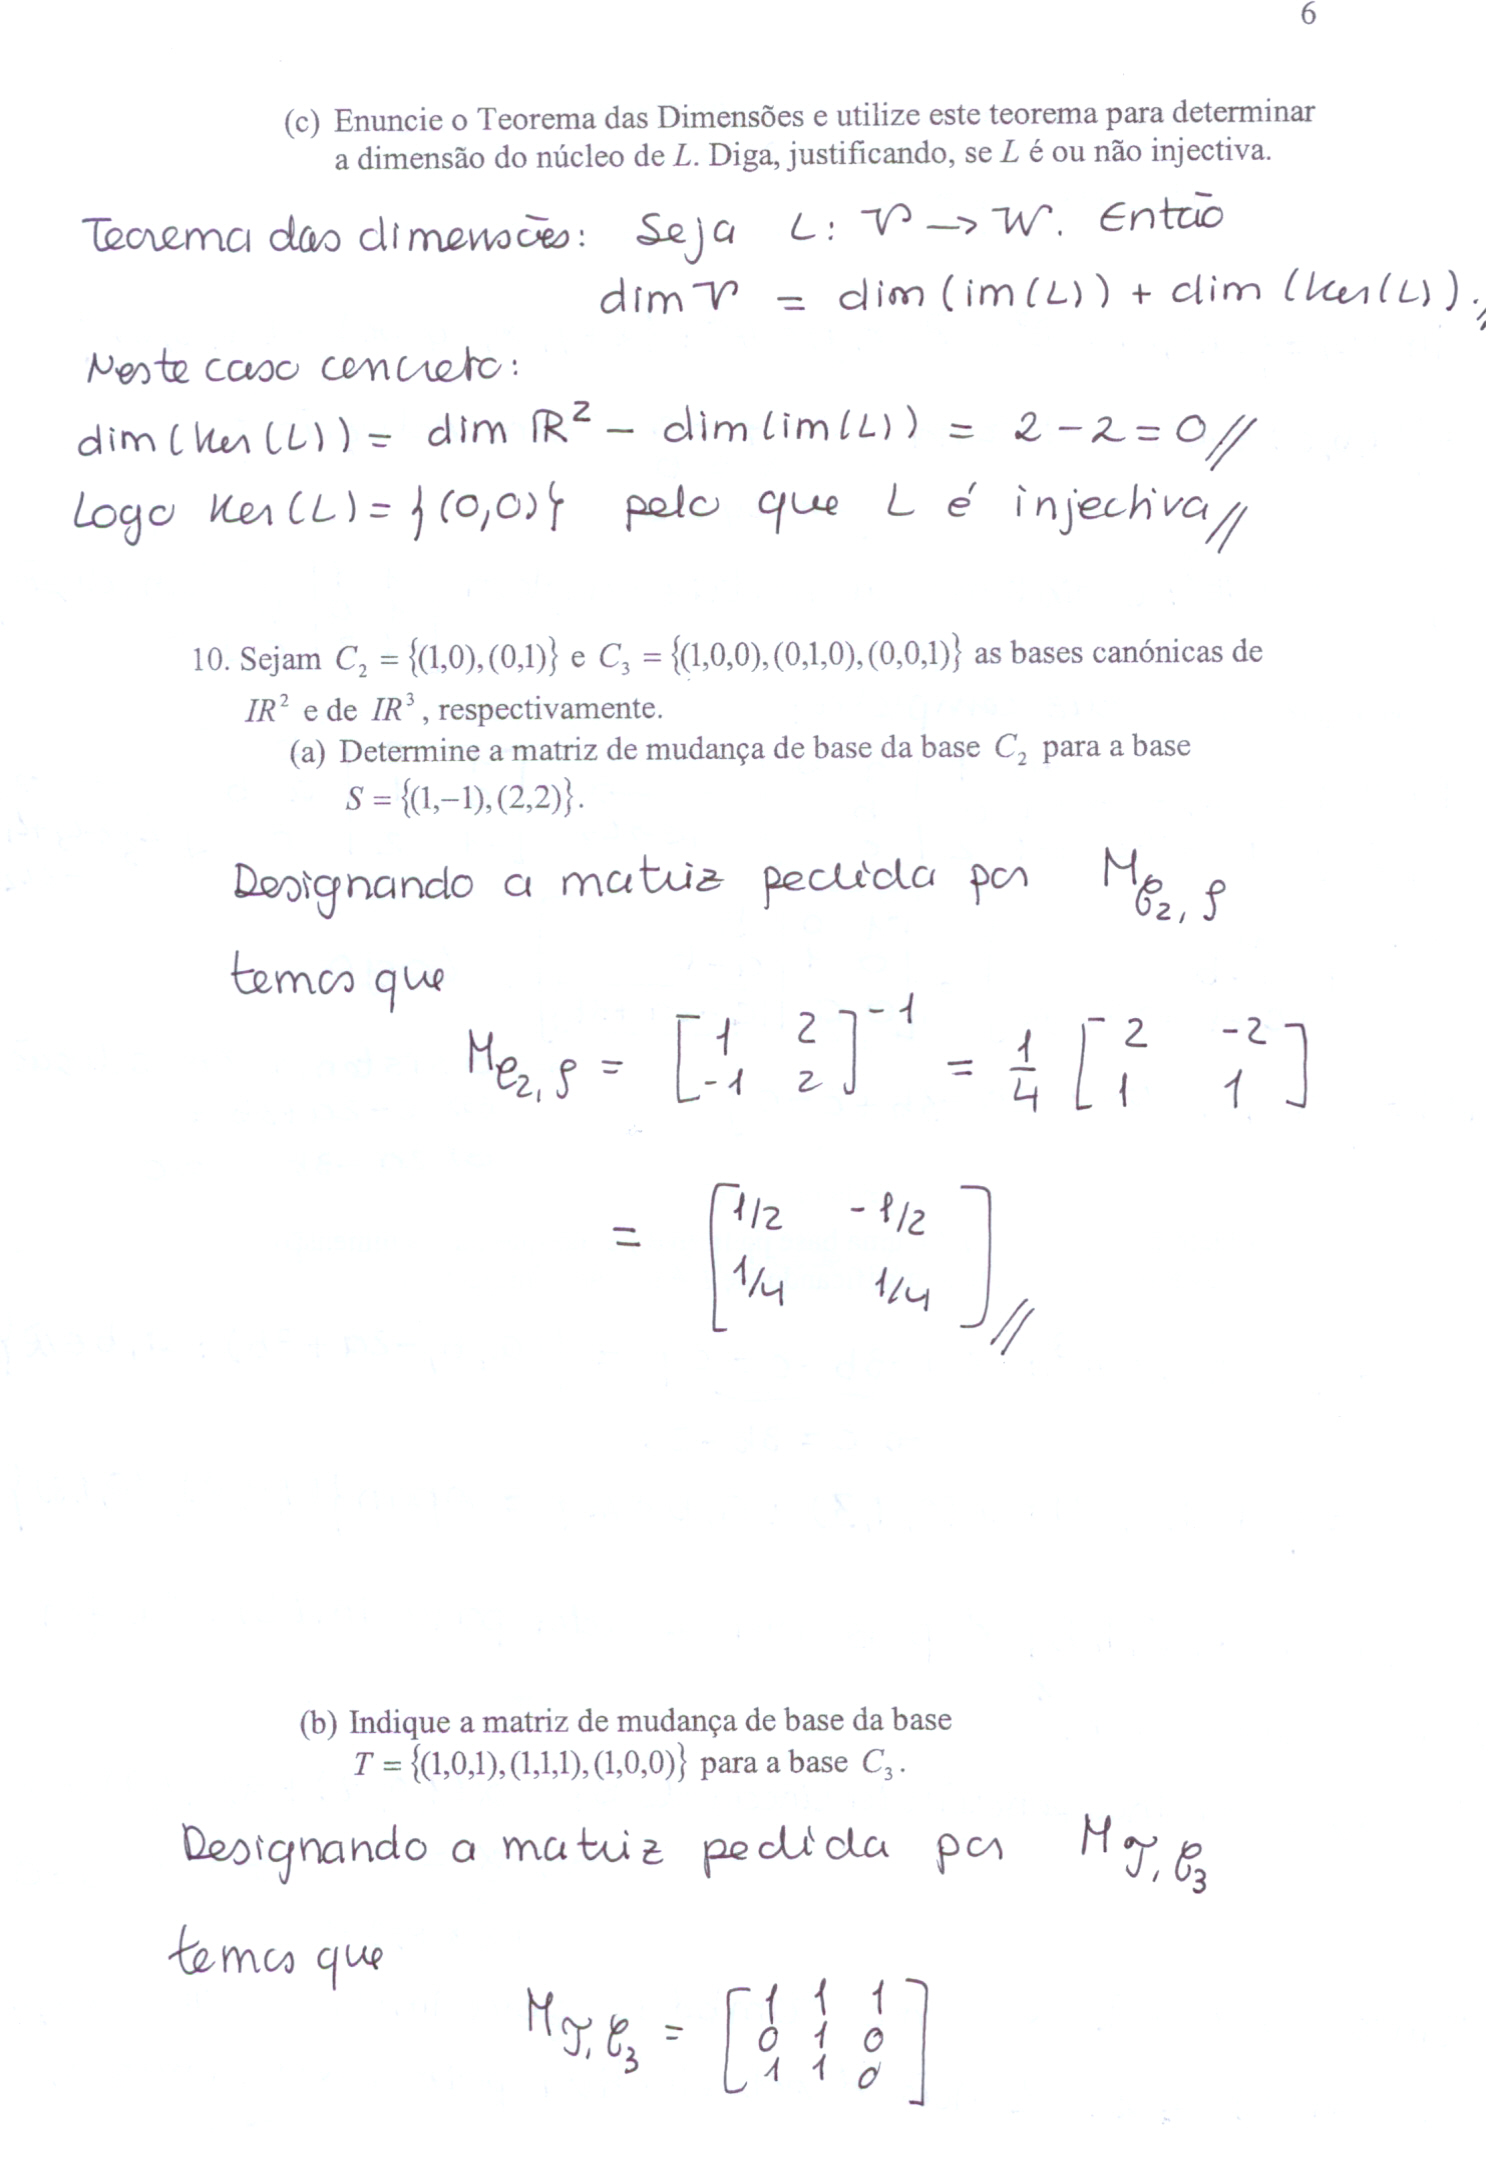 6
(c) Enuncie o Teorema das Dimensões e utilize este teorema para determinar
a dimensão do núcleo de L. Diga, justificando, se L é ou não injectiva.
Teorema das dimensões: Seja L: V → W. Então
dim V = dim (im(L)) + dim (ker(L)).//
Neste caso concreto:
dim(ker(L)) = dim ℝ² − dim(im(L)) = 2 − 2 = 0//
Logo ker(L) = {(0,0)} pelo que L é injectiva//
10. Sejam C₂ = {(1,0),(0,1)} e C₃ = {(1,0,0),(0,1,0),(0,0,1)} as bases canónicas de
IR² e de IR³, respectivamente.
(a) Determine a matriz de mudança de base da base C₂ para a base
S = {(1,−1),(2,2)}.
Designando a matriz pedida por M_{C₂, S}
temos que
M_{C₂, S} = [1 2; -1 2]⁻¹ = 1/4 [2 -2; 1 1]
= [1/2 -1/2; 1/4 1/4]//
(b) Indique a matriz de mudança de base da base
T = {(1,0,1),(1,1,1),(1,0,0)} para a base C₃.
Designando a matriz pedida por M_{T, C₃}
temos que
M_{T, C₃} = [1 1 1; 0 1 0; 1 1 0]